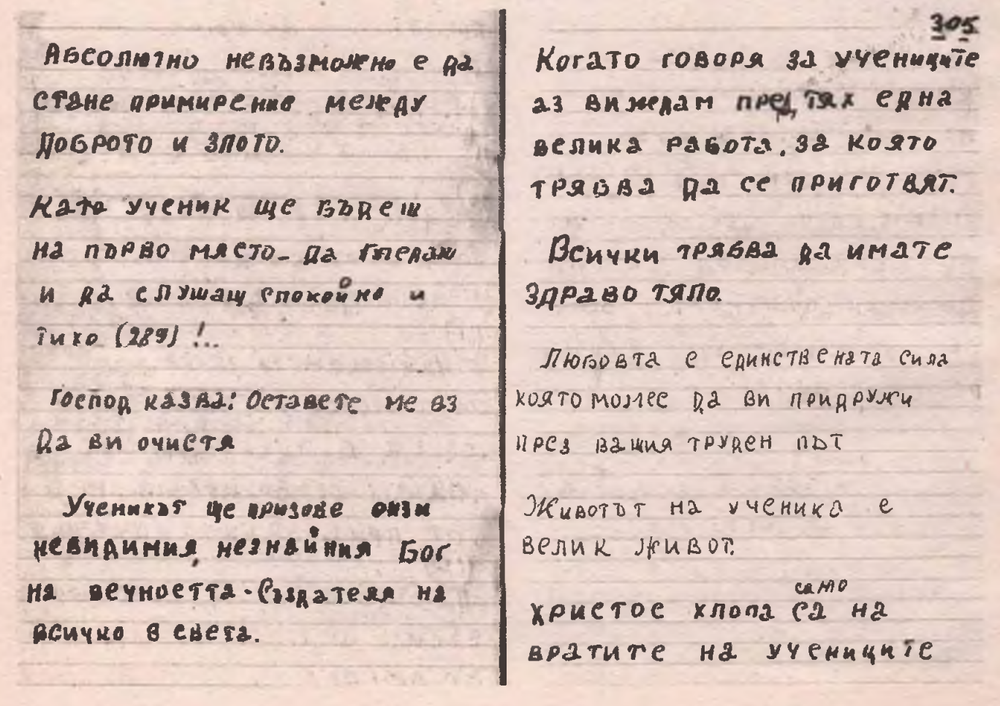 Абсолютно невъзможно е да
стане примирение между
Доброто и злото.
Като ученик ще бъдеш
на първо място - да гледаш
и да слушаш спокойно и
тихо (289) !..
Господ казва: Оставете ме аз
да ви очистя
Ученикът ще призове онзи
невидимия, незнайния Бог
на вечността - Създателя на
всичко в света.
305
Когато говоря за учениците
аз виждам пред тях една
велика работа, за която
трябва да се приготвят.
Всички трябва да имате
здраво тяло.
Любовта е единствената сила
която може да ви придружи
през вашия труден път
Животът на ученика е
велик живот.
само
Христос хлопа са на
вратите на учениците